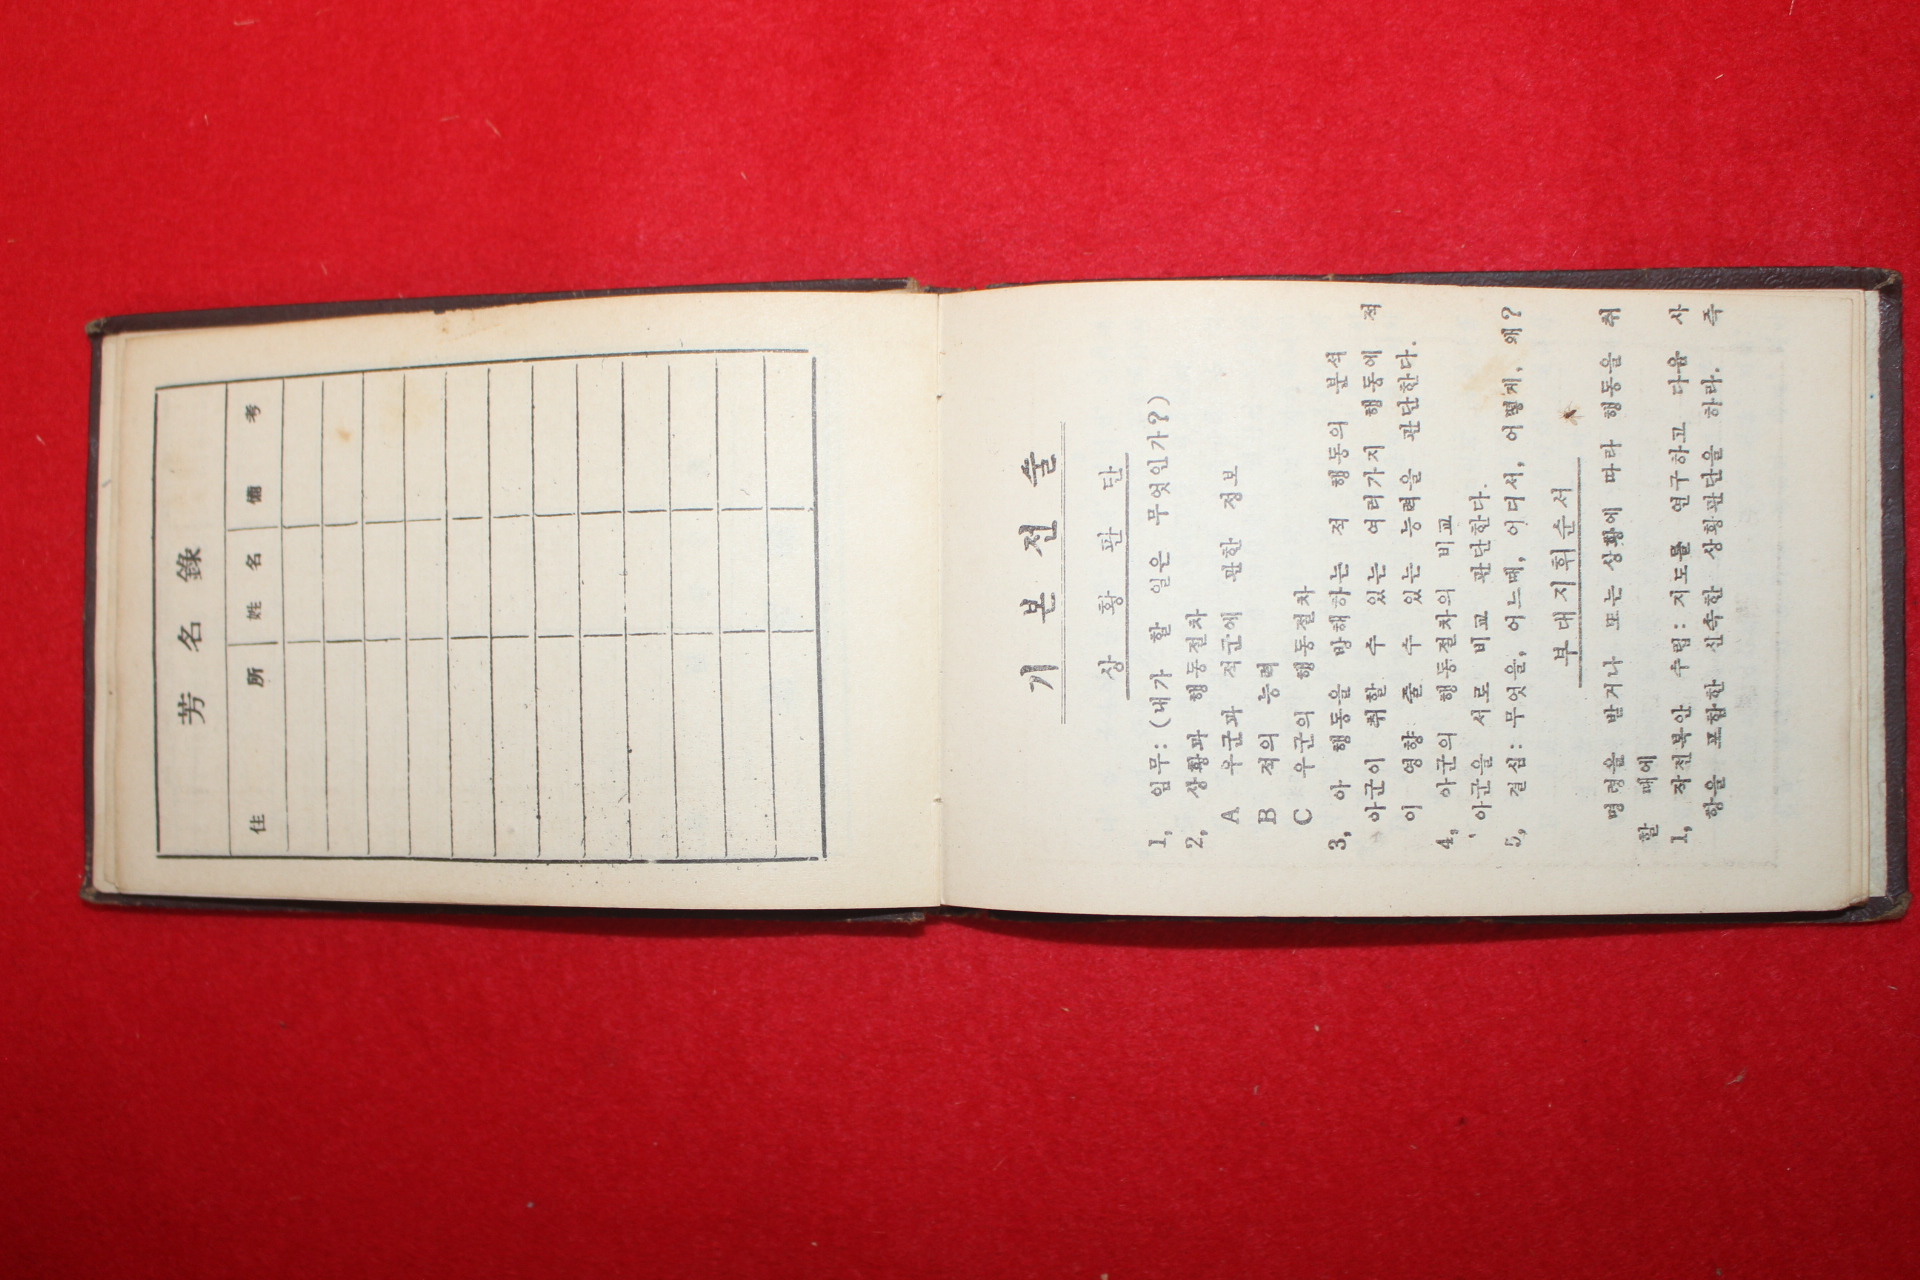 芳名錄
住所 姓名 備考
기본전술
상황판단
1, 임무:(내가 할 일은 무엇인가?)
2, 상황과 행동절차
A 우군과 적군에 관한 정보
B 적의 능력
C 우군의 행동절차
3, 아 행동을 방해하는 적 행동의 분석
아군이 취할 수 있는 여러가지 행동에 적
이 영향 줄 수 있는 능력을 판단한다.
4, 아군의 행동절차의 비교
아군을 서로 비교 판단한다.
5, 결심: 무엇을, 어느때, 어디서, 어떻게, 왜?
부대지휘순서
명령을 받거나 또는 상황에 따라 행동을 취
할 때에
1, 작전복안 수립: 지도를 연구하고 다음 사
항을 포함한 신속한 상황판단을 하라. 즉